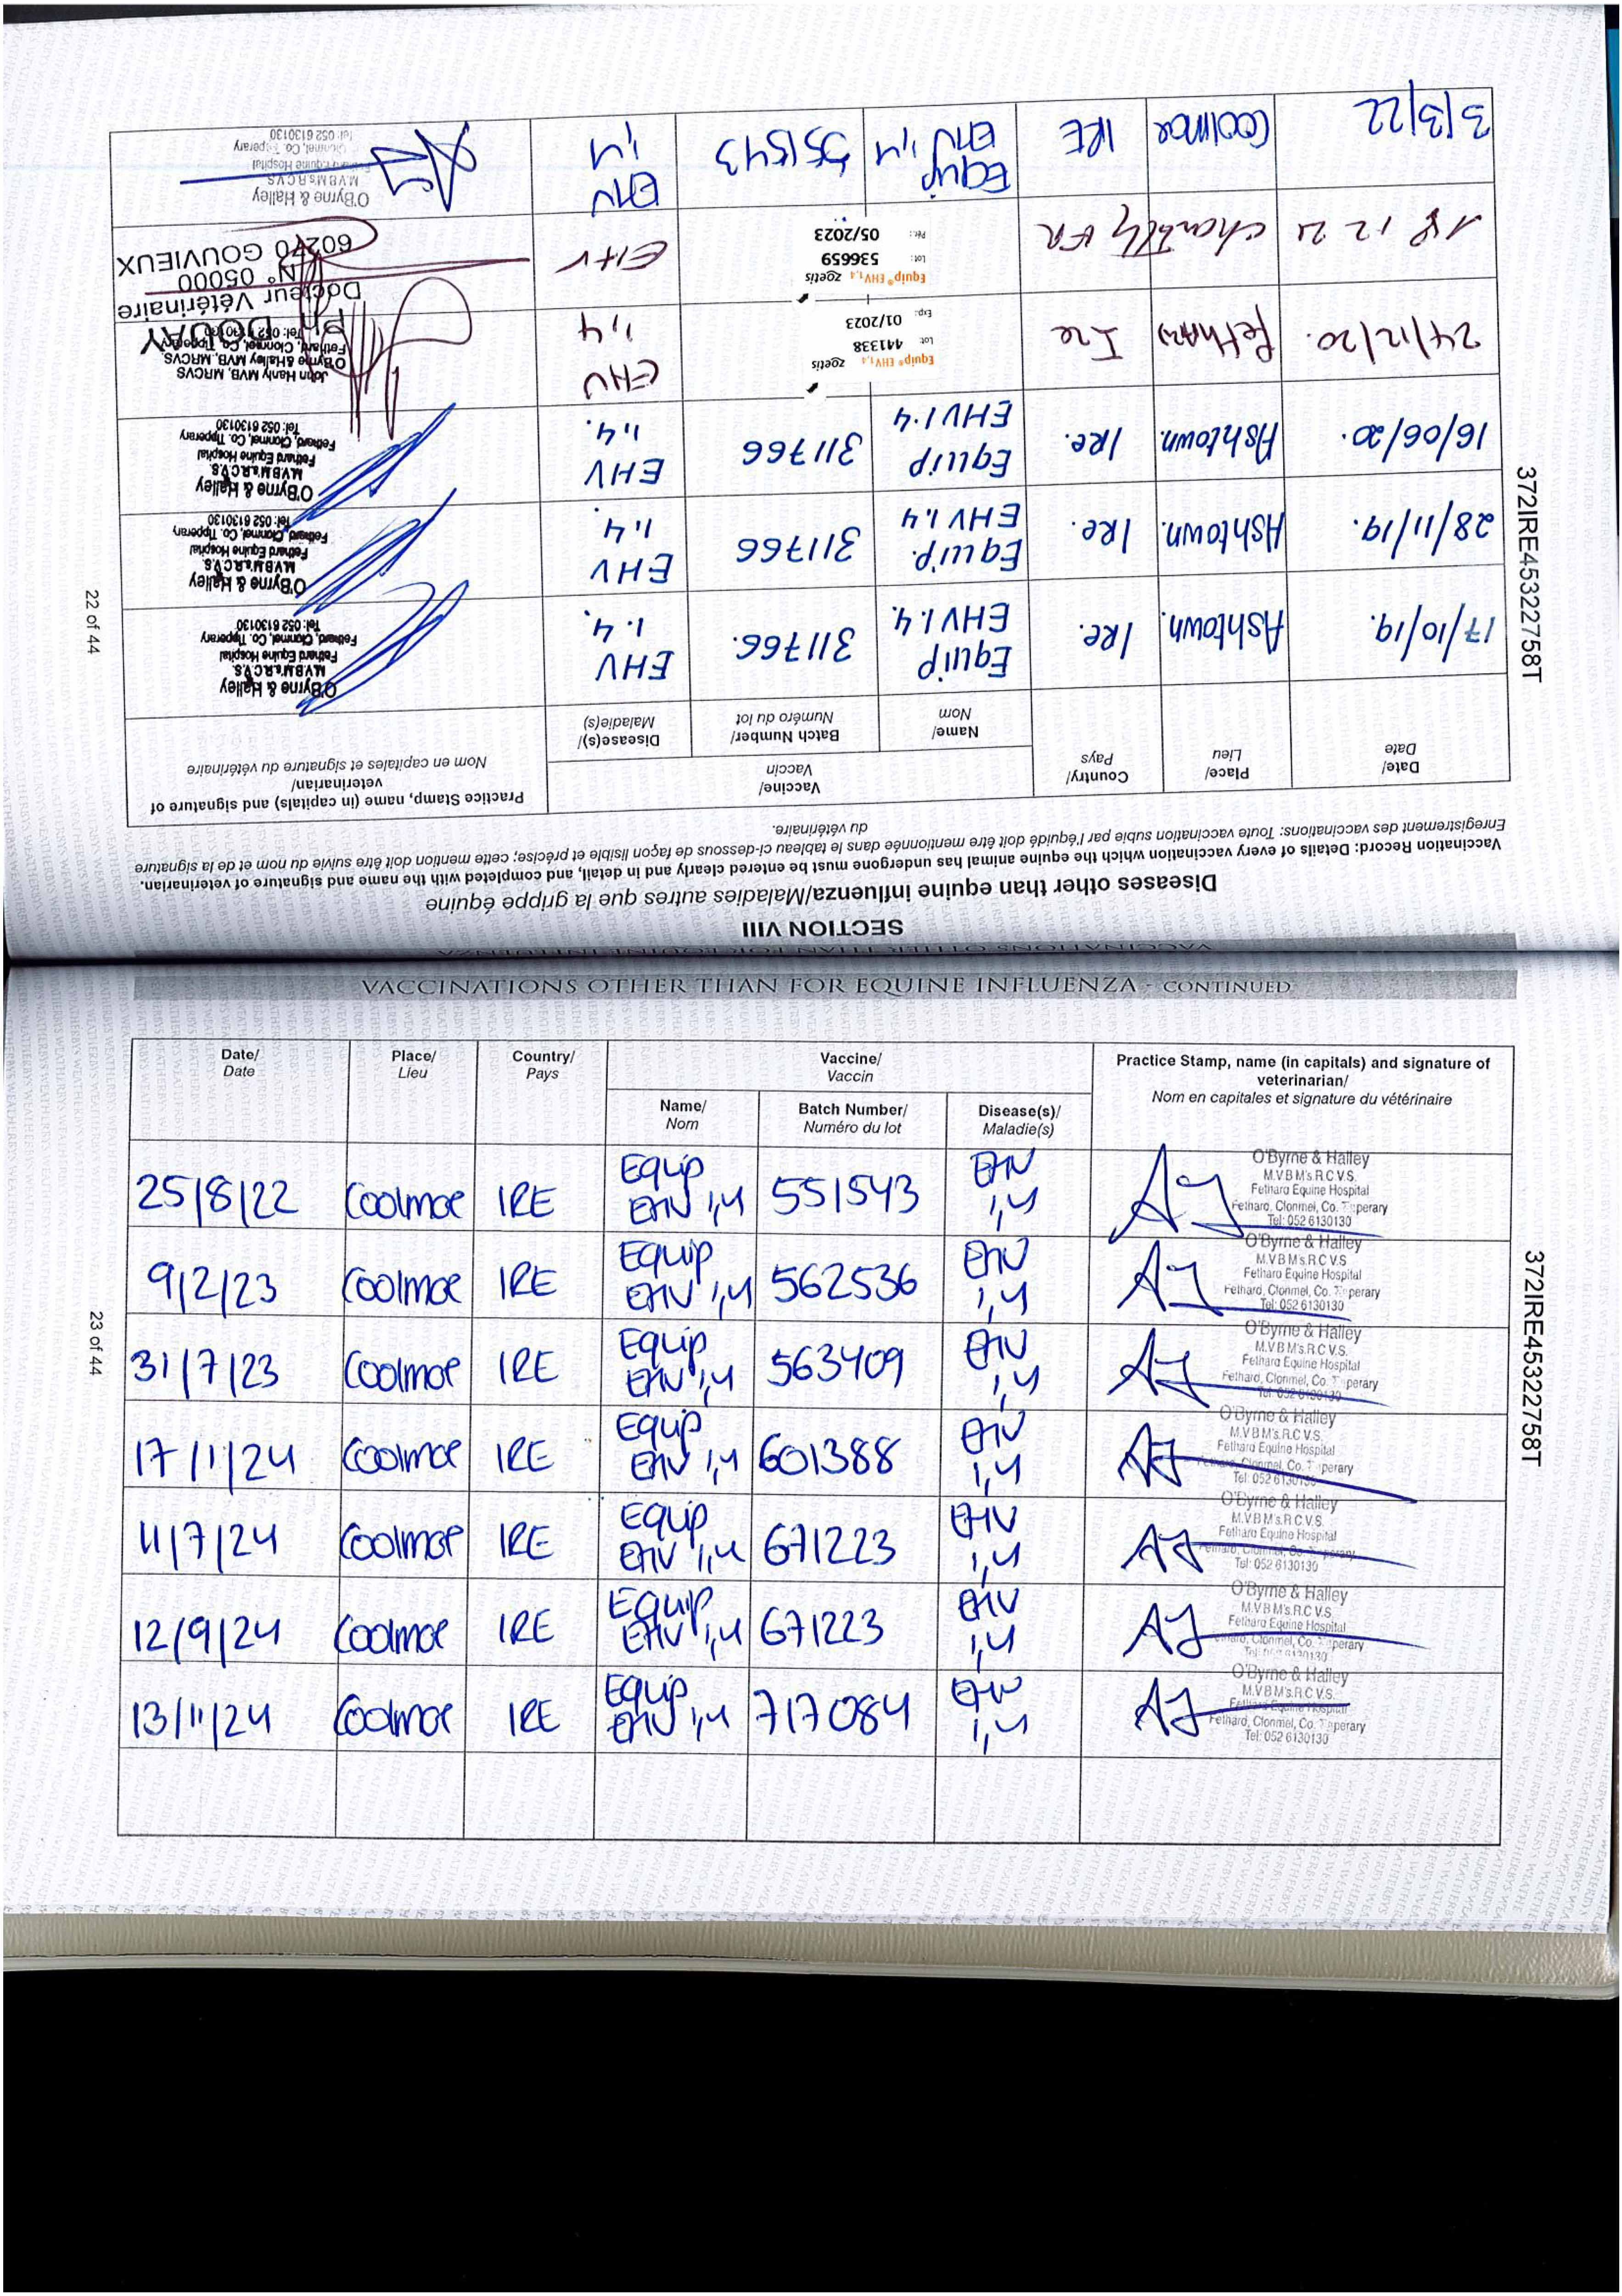 22 of 44
372IRE45322758T
SECTION VIII
Diseases other than equine influenza/Maladies autres que la grippe équine
Vaccination Record: Details of every vaccination which the equine animal has undergone must be entered clearly and in detail, and completed with the name and signature of veterinarian.
Enregistrement des vaccinations: Toute vaccination subie par l'équidé doit être mentionnée dans le tableau ci-dessous de façon lisible et précise; cette mention doit être suivie du nom et de la signature
du vétérinaire.
Date/ Place/ Country/ Vaccine/ Practice Stamp, name (in capitals) and signature of
Date Lieu Pays Vaccin veterinarian/
Name/ Batch Number/ Disease(s)/ Nom en capitales et signature du vétérinaire
Nom Numéro du lot Maladie(s)
17/10/19. Ashtown. Ire. Equip 311766. EHV O'Byrne & Halley
EHV1.4. 1.4. M.V.B M's R.C.V.S.
Fethard Equine Hospital
Fethard, Clonmel, Co. Tipperary
Tel: 052 6130130
28/11/19. Ashtown. Ire. Equip. 311766 EHV O'Byrne & Halley
EHV 1.4 1.4. M.V.B M's R.C.V.S.
Fethard Equine Hospital
Fethard, Clonmel, Co. Tipperary
Tel: 052 6130130
16/06/20. Ashtown. Ire. Equip 311766 EHV O'Byrne & Halley
EHV1.4 1.4. M.V.B M's R.C.V.S.
Fethard Equine Hospital
Fethard, Clonmel, Co. Tipperary
Tel: 052 6130130
24/12/20. Fethard Ire Equip® EHV1,4 zoetis EHV John Hanly MVB, MRCVS
Lot: 441338 1,4 O'Byrne & Halley MVB, MRCVS
Exp: 01/2023 Fethard, Clonmel, Co. Tipperary
Tel: 052 6130130
18 12 21 Chantilly FR Equip® EHV1,4 zoetis EHV DOUAY
Lot: 536659 Docteur Vétérinaire
Pér.: 05/2023 N° 05000
60270 GOUVIEUX
3/3/22 Coolmore IRE Equip 551543 EHV O'Byrne & Halley
EHV 1,4 1,4 M.V.B M's R.C.V.S
Equine Hospital
Clonmel, Co. Tipperary
Tel: 052 6130130
VACCINATIONS OTHER THAN FOR EQUINE INFLUENZA - CONTINUED
Date/ Place/ Country/ Vaccine/ Practice Stamp, name (in capitals) and signature of
Date Lieu Pays Vaccin veterinarian/
Name/ Batch Number/ Disease(s)/ Nom en capitales et signature du vétérinaire
Nom Numéro du lot Maladie(s)
25/8/22 Coolmore IRE Equip 551543 EHV O'Byrne & Halley
EHV 1,4 1,4 M.V.B M's.R.C.V.S.
Fethard Equine Hospital
Fethard, Clonmel, Co. Tipperary
Tel: 052 6130130
9/2/23 Coolmore IRE Equip 562536 EHV O'Byrne & Halley
EHV 1,4 1,4 M.V.B M's.R.C.V.S
Fethard Equine Hospital
Fethard, Clonmel, Co. Tipperary
Tel: 052 6130130
31/7/23 Coolmore IRE Equip 563409 EHV O'Byrne & Halley
EHV 1,4 1,4 M.V.B M's.R.C.V.S.
Fethard Equine Hospital
Fethard, Clonmel, Co. Tipperary
Tel: 052 6130130
17/1/24 Coolmore IRE Equip 601388 EHV O'Byrne & Halley
EHV 1,4 1,4 M.V.B M's.R.C.V.S.
Fethard Equine Hospital
Fethard, Clonmel, Co. Tipperary
Tel: 052 6130130
11/7/24 Coolmore IRE Equip 671223 EHV O'Byrne & Halley
EHV 1,4 1,4 M.V.B M's.R.C.V.S.
Fethard Equine Hospital
Fethard, Clonmel, Co. Tipperary
Tel: 052 6130130
12/9/24 Coolmore IRE Equip 671223 EHV O'Byrne & Halley
EHV 1,4 1,4 M.V.B M's.R.C.V.S
Fethard Equine Hospital
Fethard, Clonmel, Co. Tipperary
Tel: 052 6130130
13/11/24 Coolmore IRE Equip 717084 EHV O'Byrne & Halley
EHV 1,4 1,4 M.V.B M's.R.C.V.S.
Fethard Equine Hospital
Fethard, Clonmel, Co. Tipperary
Tel: 052 6130130
372IRE45322758T
23 of 44